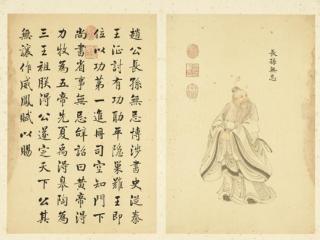 長孫無忌
趙公長孫無忌博涉書史從秦
王征討有功平隱巢難王即
位以功第一進冊司空知門下
尚書省事無忌辭詔曰黃帝得
力牧為五帝先夏禹得皋陶為
三王祖朕得公遂定天下公其
無讓作威鳳賦以賜